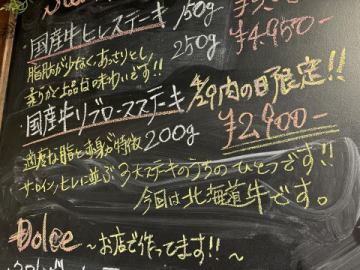 国産牛ヒレステーキ 150g
250g ¥4,950-
脂肪が少なく、あっさりとし
柔らかく上品な味わいです!!
国産牛リブロースステーキ 4/29 肉の日限定!!
200g ¥2,900-
適度な脂と赤身が特徴
サーロイン、ヒレに並ぶ3大ステーキのうちのひとつです!!
今回は北海道牛です。
Dolce ~お店で作ってます!!~